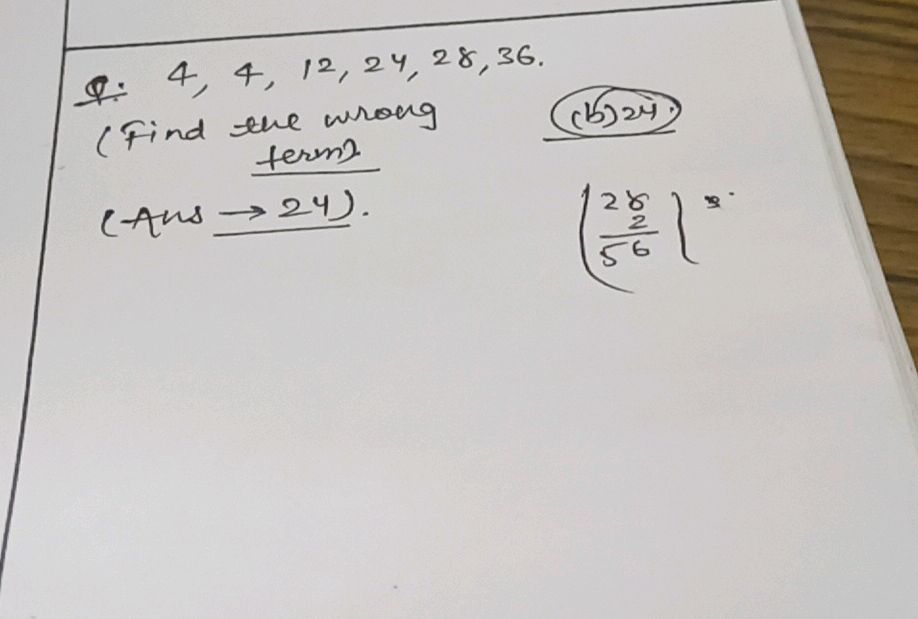 Q: 4, 4, 12, 24, 28, 36.
(Find the wrong
term)
(Ans → 24).
(b) 24.
28
2
56